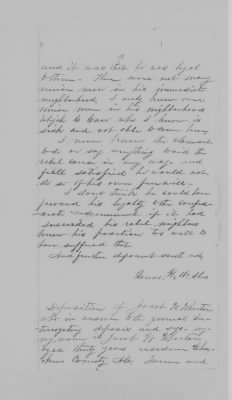 and it was that he was loyal
to them. There were not many
union men in his immediate
neighborhood. I only knew one
union man in his neighborhood
Elijah who I know is
sick and not able to come here.
I never knew the claimant
to do or say anything to aid the
rebel cause in any way and
feel satisfied he would not
do so of his own free will.
I don't think he could have
proved his loyalty to the Confed-
erate government if it had
succeeded his rebel neighbors
knew his position too well to
have suffered that
And further deponent saith not
Deposition of Jacob W
who in answer to the general in-
terrogatory deposes and says - my
name is Jacob W
aged thirty years residence
County Ala, farmer and